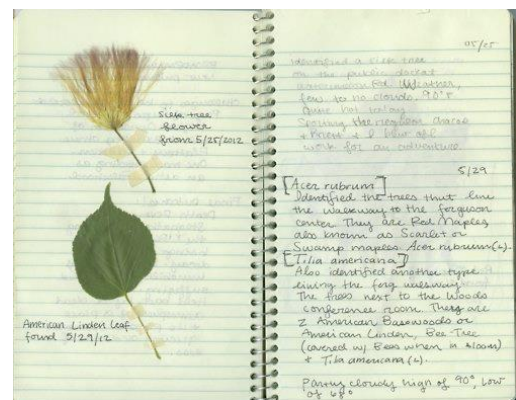 Silk tree
flower
from 5/25/2012
American Linden Leaf
found 5/29/12
05/25
identified a silk tree
on the public
weather,
few to no clouds. 90°F
work for an adventure.
5/29
[Acer rubrum]
Identified the trees that line
the walkway to the ferguson
center. They are Red Maples
also known as Scarlet or
Swamp maples Acer rubrum (L).
[Tilia americana]
Also identified another type
lining the ferg walkway.
The trees next to the Woods
conference room. They are
2 American Basswoods or
American Linden, Bee-Tree
(covered w/ Bees when in bloom)
+ Tilia americana (L).
Partly cloudy high of 90°, low
of 68°